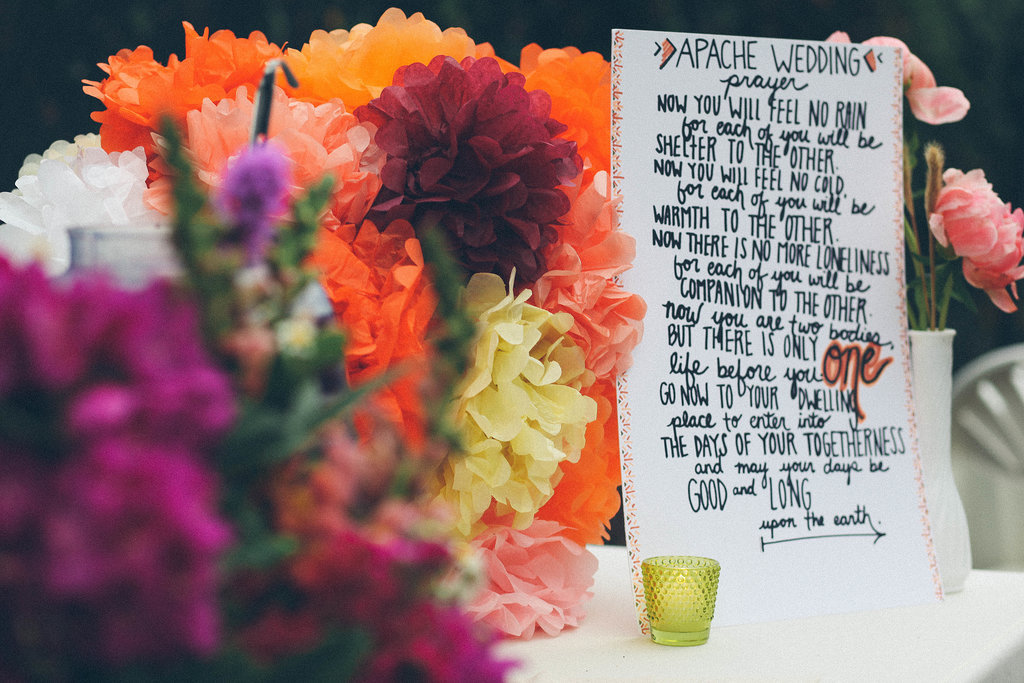 APACHE WEDDING
prayer
NOW YOU WILL FEEL NO RAIN
for each of you will be
SHELTER TO THE OTHER.
NOW YOU WILL FEEL NO COLD,
for each of you will be
WARMTH TO THE OTHER.
NOW THERE IS NO MORE LONELINESS
for each of you will be
COMPANION TO THE OTHER.
now you are two bodies,
BUT THERE IS ONLY one
life before you.
GO NOW TO YOUR DWELLING
place to enter into
THE DAYS OF YOUR TOGETHERNESS
and may your days be
GOOD and LONG
upon the earth.